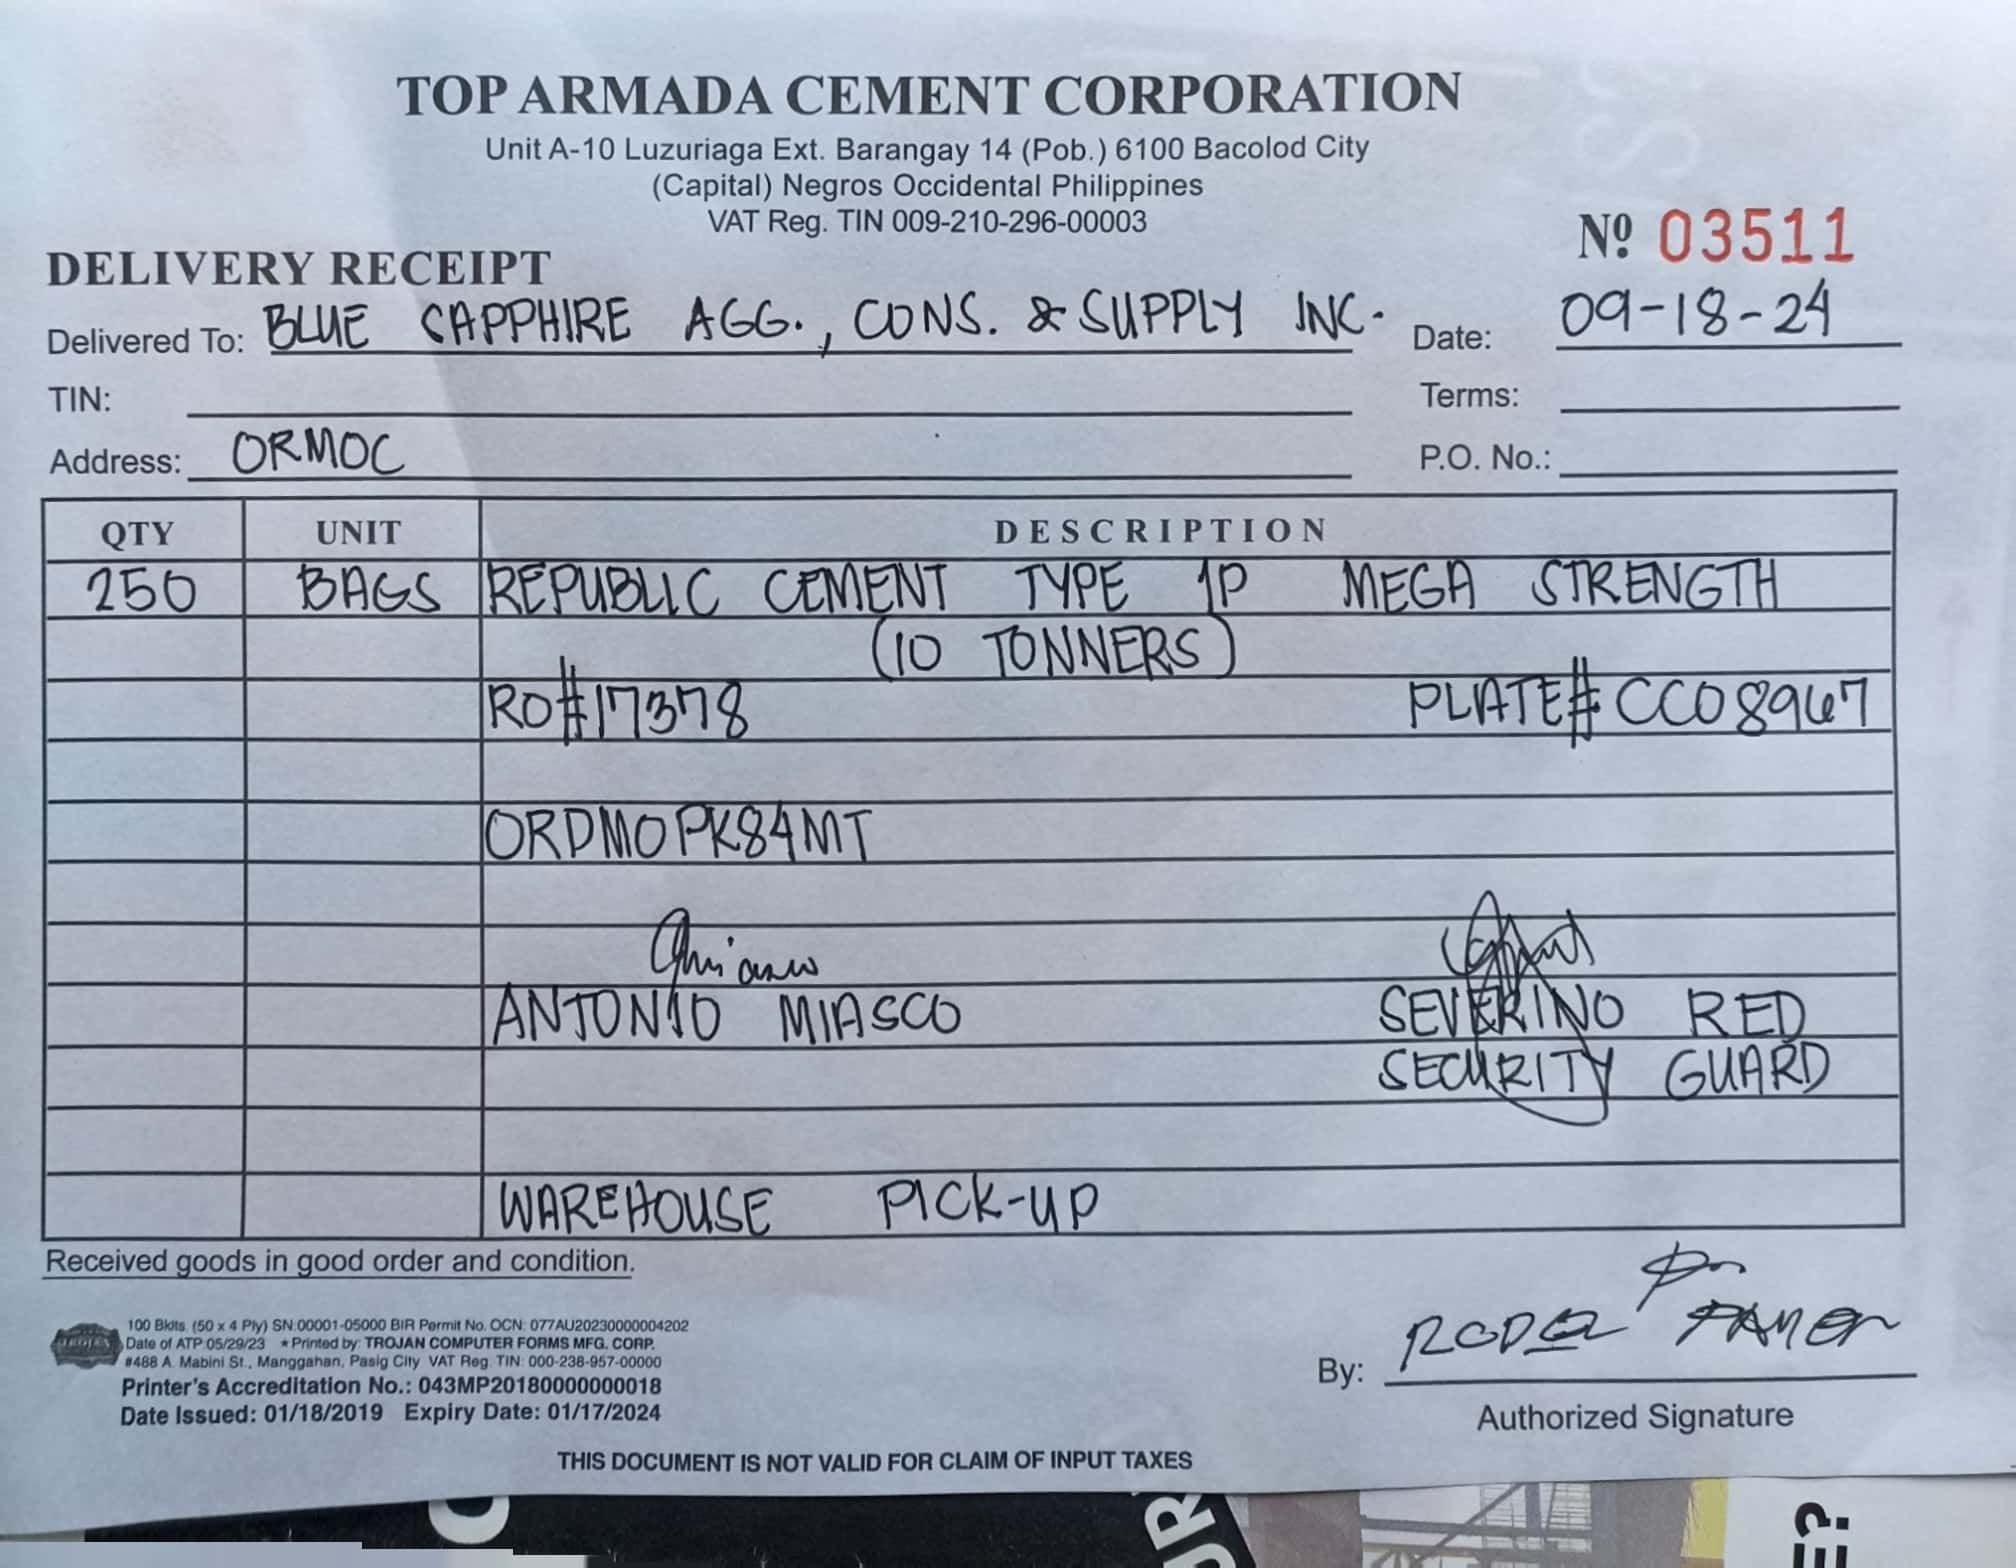 TOP ARMADA CEMENT CORPORATION
Unit A-10 Luzuriaga Ext. Barangay 14 (Pob.) 6100 Bacolod City
(Capital) Negros Occidental Philippines
VAT Reg. TIN 009-210-296-00003
Nº 03511
DELIVERY RECEIPT
Delivered To: BLUE SAPPHIRE AGG., CONS. & SUPPLY INC. Date: 09-18-24
TIN: Terms:
Address: ORMOC P.O. No.:
QTY UNIT DESCRIPTION
250 BAGS REPUBLIC CEMENT TYPE 1P MEGA STRENGTH
(10 TONNERS)
RO#17378 PLATE# CCO8967
ORDMOPK84MT
ANTONIO MIASCO SEVERINO RED
SECURITY GUARD
WAREHOUSE PICK-UP
Received goods in good order and condition.
100 Bklts. (50 x 4 Ply) SN:00001-05000 BIR Permit No. OCN: 077AU20230000004202
Date of ATP:05/29/23 ★Printed by: TROJAN COMPUTER FORMS MFG. CORP.
#488 A. Mabini St., Manggahan, Pasig City VAT Reg. TIN: 000-238-957-00000
Printer's Accreditation No.: 043MP20180000000018
Date Issued: 01/18/2019 Expiry Date: 01/17/2024
By: RODEL
Authorized Signature
THIS DOCUMENT IS NOT VALID FOR CLAIM OF INPUT TAXES